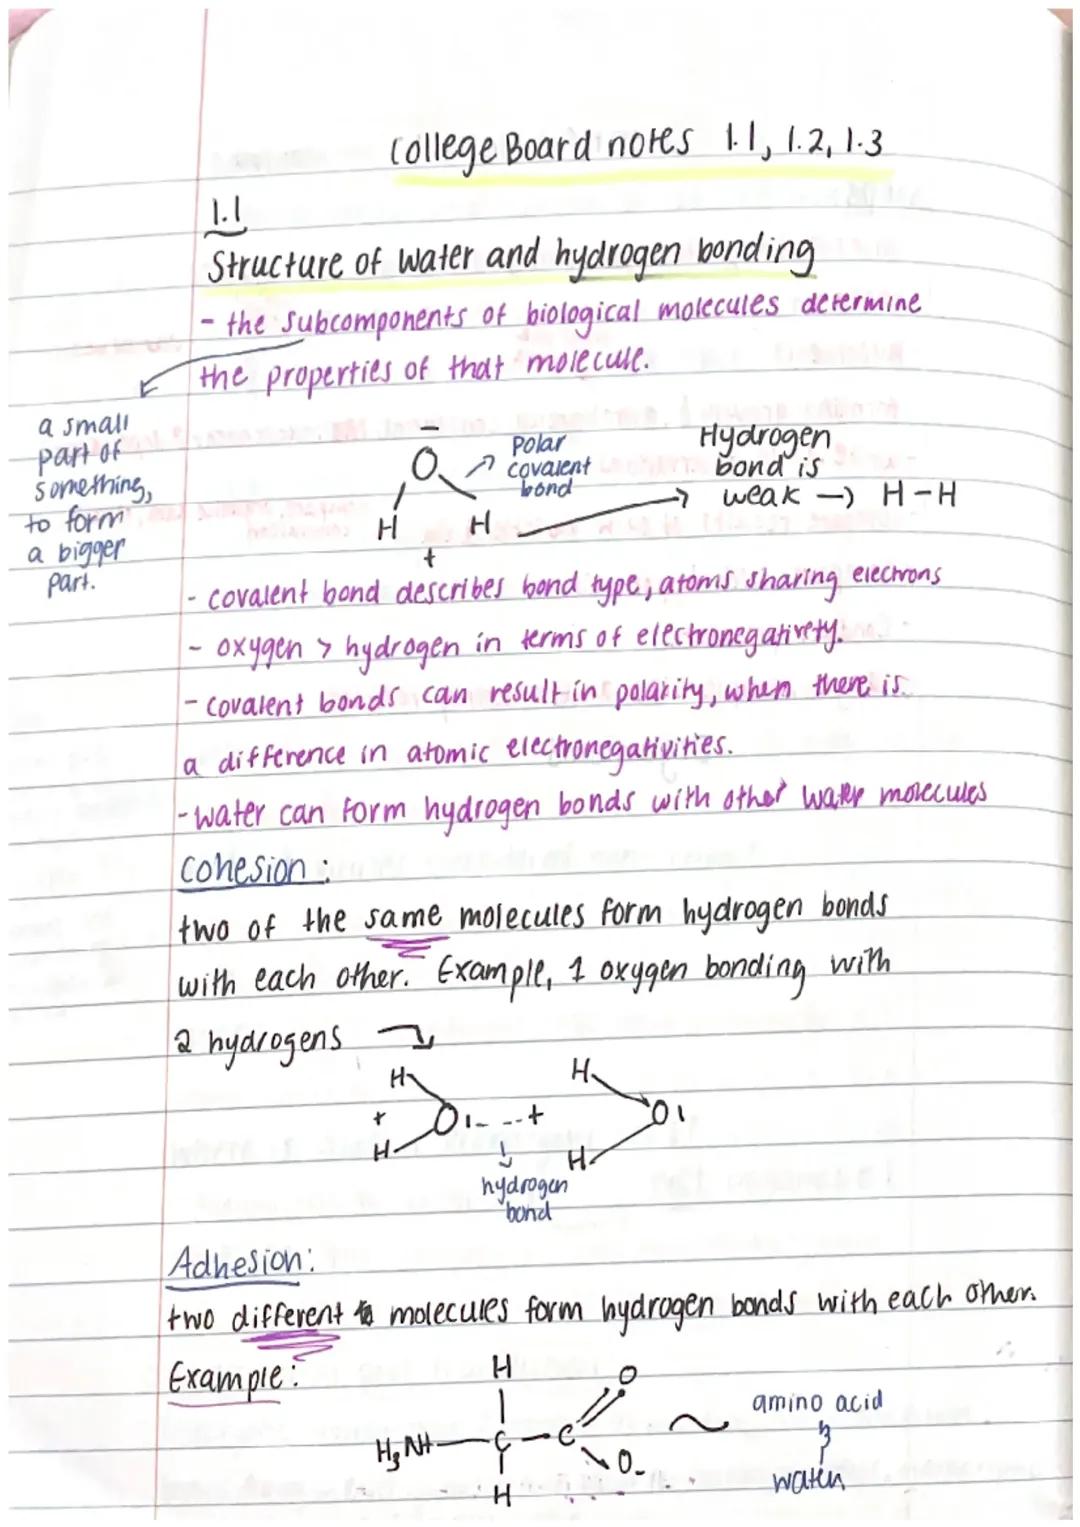 College Board notes 1.1, 1.2, 1.3
1.1
Structure of water and hydrogen bonding
- the subcomponents of biological molecules determine
the properties of that molecule.
a small
part of
something,
to form
a bigger
part.
-
O
H H
+
Polar
covalent
bond
Hydrogen
bond is
weak → H-H
- covalent bond describes bond type, atoms sharing elechrons
- oxygen > hydrogen in terms of electronegativety.
- covalent bonds can result in polarity, when there is
a difference in atomic electronegativities.
- water can form hydrogen bonds with other water molecules
Cohesion:
two of the same molecules form hydrogen bonds
with each other. Example, 1 oxygen bonding with
2 hydrogens
H H
+ O - + O
H H
hydrogen
bond
Adhesion:
two different molecules form hydrogen bonds with each other.
Example:
H O
H3NH-C-C
O-
H
amino acid
&
water